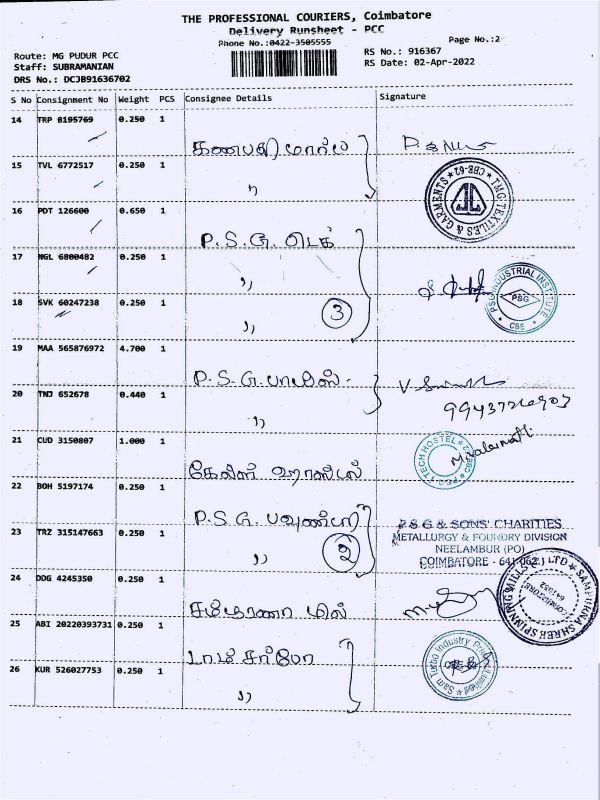 THE PROFESSIONAL COURIERS, Coimbatore
Delivery Runsheet - PCC
Phone No.:0422-3505555
Page No.:2
Route: MG PUDUR PCC
Staff: SUBRAMANIAN
DRS No.: DCJB91636702
RS No.: 916367
RS Date: 02-Apr-2022
S No Consignment No Weight PCS Consignee Details Signature
14 TRP 8195769 0.250 1
கணபதி மார்ல
15 TVL 6772517 0.250 1
")
TMG TEXTILES & GARMENTS * CBE-62 *
16 PDT 126600 0.650 1
P.S.G. டெக்
17 NGL 6800482 0.250 1
")
PSG INDUSTRIAL INSTITUTE
PSG
* CBE *
18 SVK 60247238 0.250 1
") ③
19 MAA 565876972 4.700 1
P.S.G. பாலிஸ்
20 TNJ 652678 0.440 1
")
21 CUD 3150807 1.000 1
TECH HOSTEL
22 BOH 5197174 0.250 1
P.S.G. பவுண்டரி
23 TRZ 315147663 0.250 1
") ②
P S G & SONS' CHARITIES
METALLURGY & FOUNDRY DIVISION
NEELAMBUR (PO)
COIMBATORE - 641 062.
24 DDG 4245350 0.250 1
SAMPURNA SHREE SPINNING MILLS LTD
COIMBATORE
25 ABI 20220393731 0.250 1
டாம் சர்போ
26 KUR 526027753 0.250 1
")
Sam Turbo Industry Private Limited